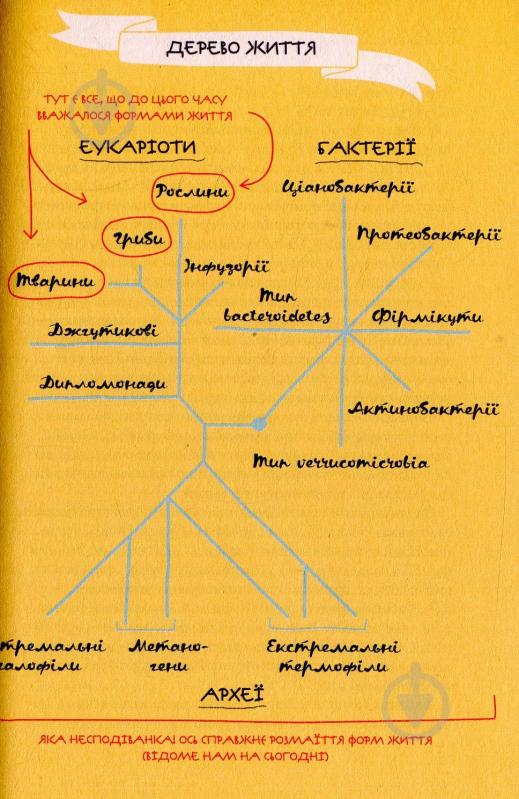 ДЕРЕВО ЖИТТЯ
ТУТ Є ВСЕ, ЩО ДО ЦЬОГО ЧАСУ
ВВАЖАЛОСЯ ФОРМАМИ ЖИТТЯ
ЕУКАРІОТИ
БАКТЕРІЇ
Рослини
Ціанобактерії
Гриби
Протеобактерії
Інфузорії
Тварини
Тип
bacteroidetes
Фірмікути
Джгутикові
Дипломонади
Актинобактерії
Тип
тремальні
галофіли
Метано-
гени
Екстремальні
термофіли
АРХЕЇ
ЯКА НЕСПОДІВАНКА! ОСЬ СПРАВЖНЄ РОЗМАЇТТЯ ФОРМ ЖИТТЯ
(ВІДОМЕ НАМ НА СЬОГОДНІ)